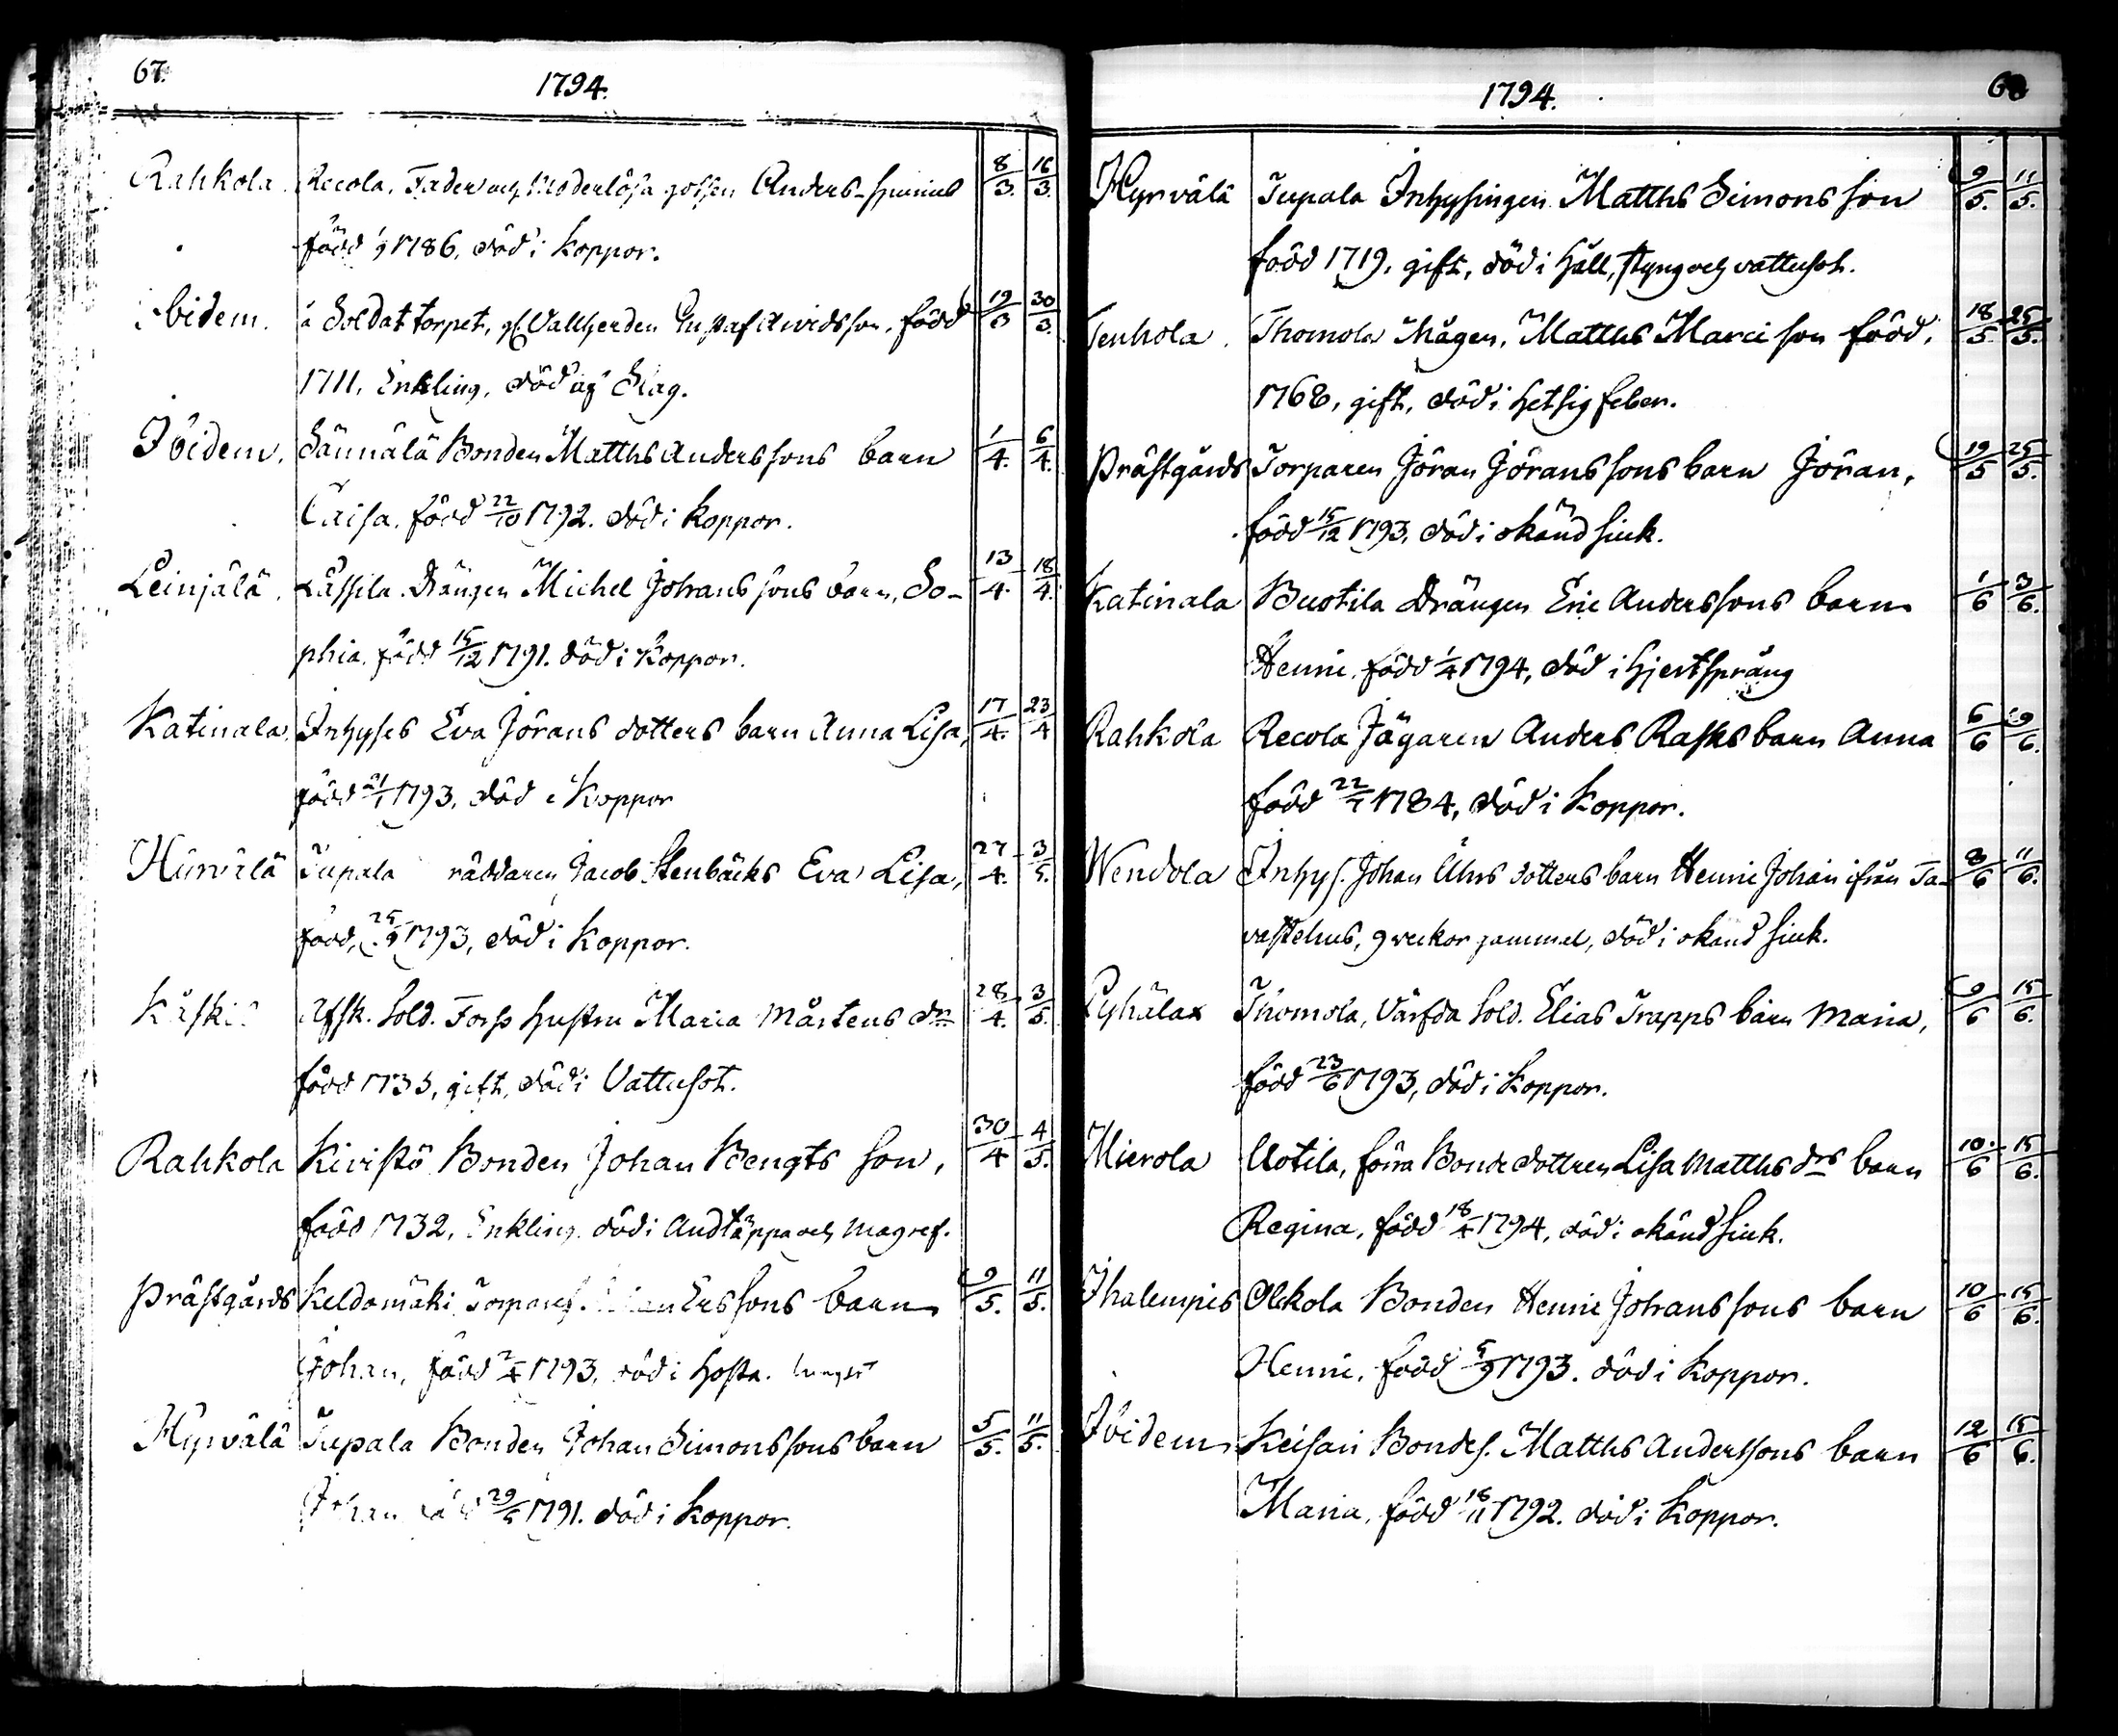 67.
1794.
Rahkola. Recola, Fader och Moderlösa gossen Anders 8/3. 16/3.
född 1/9 1786, död i Koppor.
Ibidem. å Soldat torpet, gl. Vallherden Gustaf Arvidsson, född 19/3 30/3.
1711, Enkling, död af Slag.
Ibidem. Sännälä Bonden Matths Anderssons barn 1/4. 6/4.
Caisa. född 22/10 1792. död i Koppor.
Leinjälä. Lassila Drängen Michel Johanssons barn, So- 13/4. 18/4.
phia. född 15/12 1791. död i Koppor.
Katinala. Inhyses Eva Jörans dotters barn Anna Lisa, 17/4. 23/4
född 21/1 1793, död i Koppor
Hürvälä Tupala räddaren Jacob Stenbäcks Eva Lisa, 27/4. 3/5.
född, 25/9 1793, död i Koppor.
Afsk. Sold. Forss hustru Maria Mårtens dr 28/4. 3/5.
född 1735, gift, död i Vattusot.
Rahkola Kivistö Bonden Johan Bengts son, 30/4 4/5.
född 1732, Enkling. död i Andtäppa och Magref.
Prästgårds Keldomäki Ers sons barn 9/5. 11/5.
Johan, född 2/4 1793, död i Hosta.
Hyrvälä Tupala Bonden Johan Simonssons barn 5/5. 11/5.
Johan 1791. död i Koppor.
1794.
68
Hyrvälä Tupala Inhysingen Matths Simons son 9/5. 11/5.
född 1719, gift, död i Håll, styng och vattusot.
Tenhola. Thomola Mågen, Matths Marci son född. 18/5. 25/5.
1768, gift, död i hetsig feber.
Prästgårds Torparen Jöran Jöranssons barn Jöran, 19/5 25/5.
född 15/12 1793, död i okänd siuk.
Katinala Buotila Drängen Eric Anderssons barn 1/6 3/6.
Henric. född 1/4 1794, död i Hjertsprång
Rahkola Recola Jägaren Anders Rasks barn Anna 6/6 9/6.
född 22/7 1784, död i Koppor.
Wendola Inhys. Johan dotters barn Henric Johan ifrån Ta- 8/6 11/6.
vastehus, 9 veckor gammal, död i okänd siuk.
Pyhälax Thomola, Värfda Sold. Elias Trapps barn Maria, 9/6 15/6.
född 23/6 1793, död i Koppor.
Mierola Uotila, förra Bonde dottren Lisa Matths drs barn 10/6 15/6.
Regina, född 18/4 1794, död i okänd siuk.
Ihalempis Olckola Bonden Henric Johanssons barn 10/6 15/6.
Henric. född 5/9 1793. död i Koppor.
Ibidem Keisari Bondes. Matths Anderssons barn 12/6 15/6.
Maria, född 18/11 1792. död i Koppor.